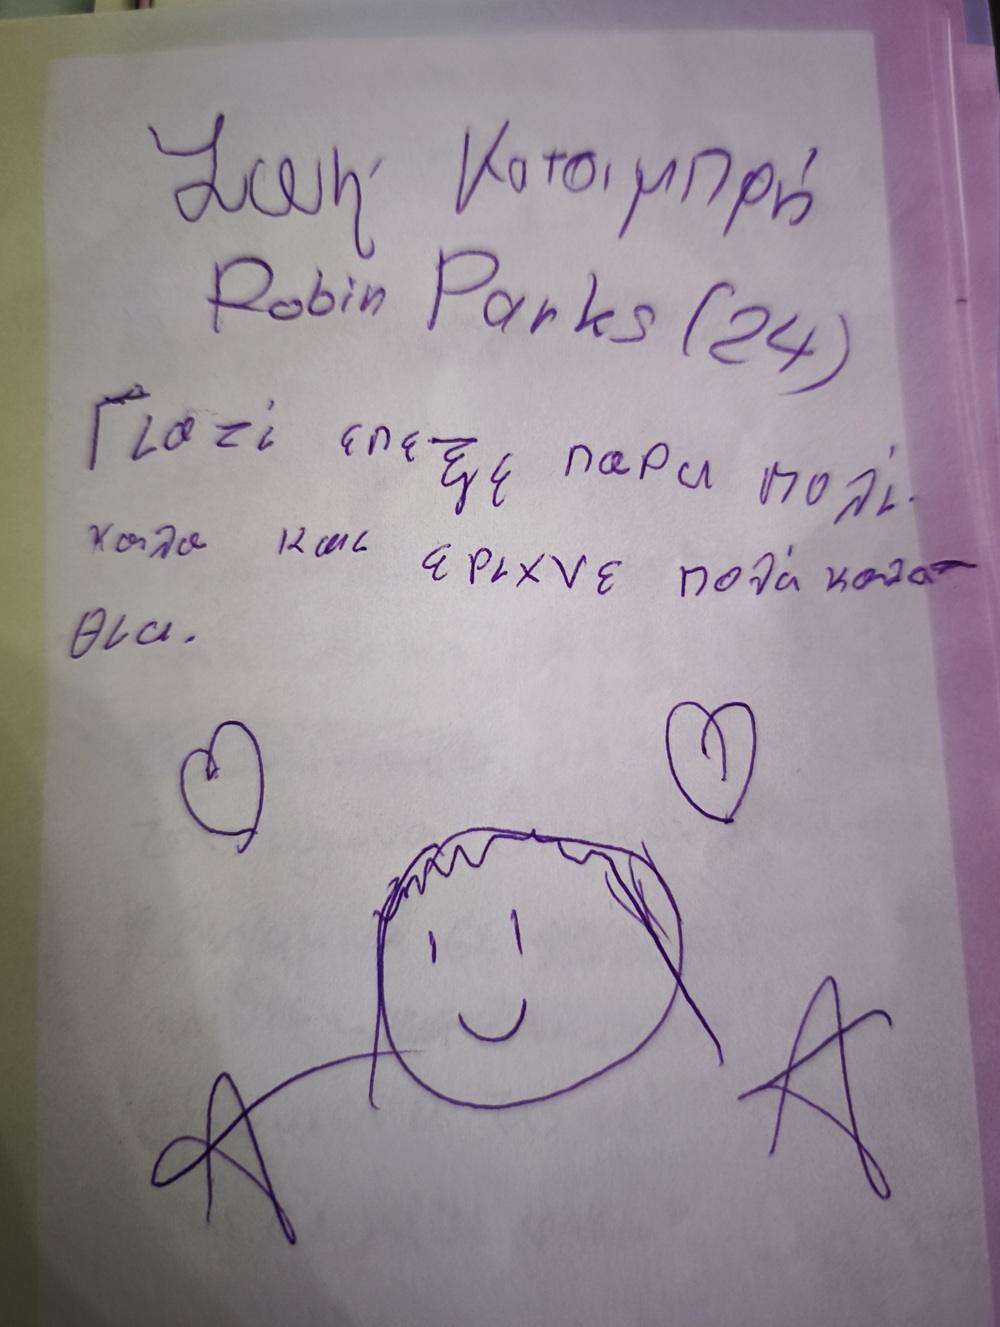 Ζωή Κατσιμπρή
Robin Parks (24)
Γιατί επεξε παρα πολί
καλα και εριχνε πολά καλα-
θια.
A A